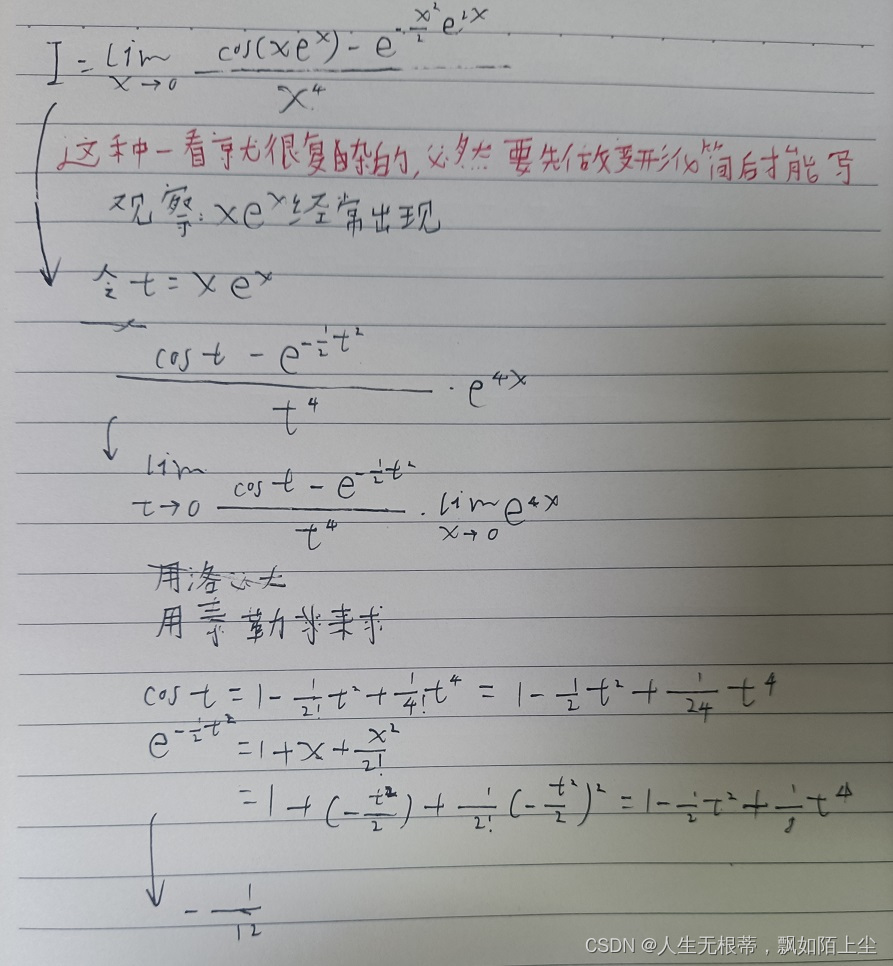 I = lim x→0 (cos(xe^x) - e^(-x²/2 e^(2x))) / x⁴
这种一看就很复杂的,必然要先做变形化简后才能写
观察:xe^x经常出现
令 t = xe^x
(cos t - e^(-1/2 t²)) / t⁴ · e^(4x)
lim t→0 (cos t - e^(-1/2 t²)) / t⁴ · lim x→0 e^(4x)
用洛必大
用泰勒来求
cos t = 1 - 1/2! t² + 1/4! t⁴ = 1 - 1/2 t² + 1/24 t⁴
e^(-1/2 t²) = 1 + x + x²/2!
= 1 + (-t²/2) + 1/2! (-t²/2)² = 1 - 1/2 t² + 1/8 t⁴
- 1/12
CSDN @人生无根蒂,飘如陌上尘